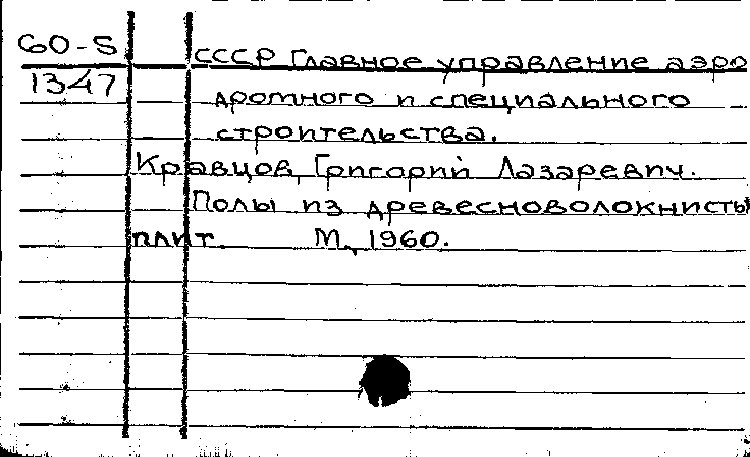 60-5 СССР Главное управление аэро
1347 дромного и специального
строительства.
Кравцов, Григорий Лазаревич.
Полы из древесноволокнисты
плит. М., 1960.